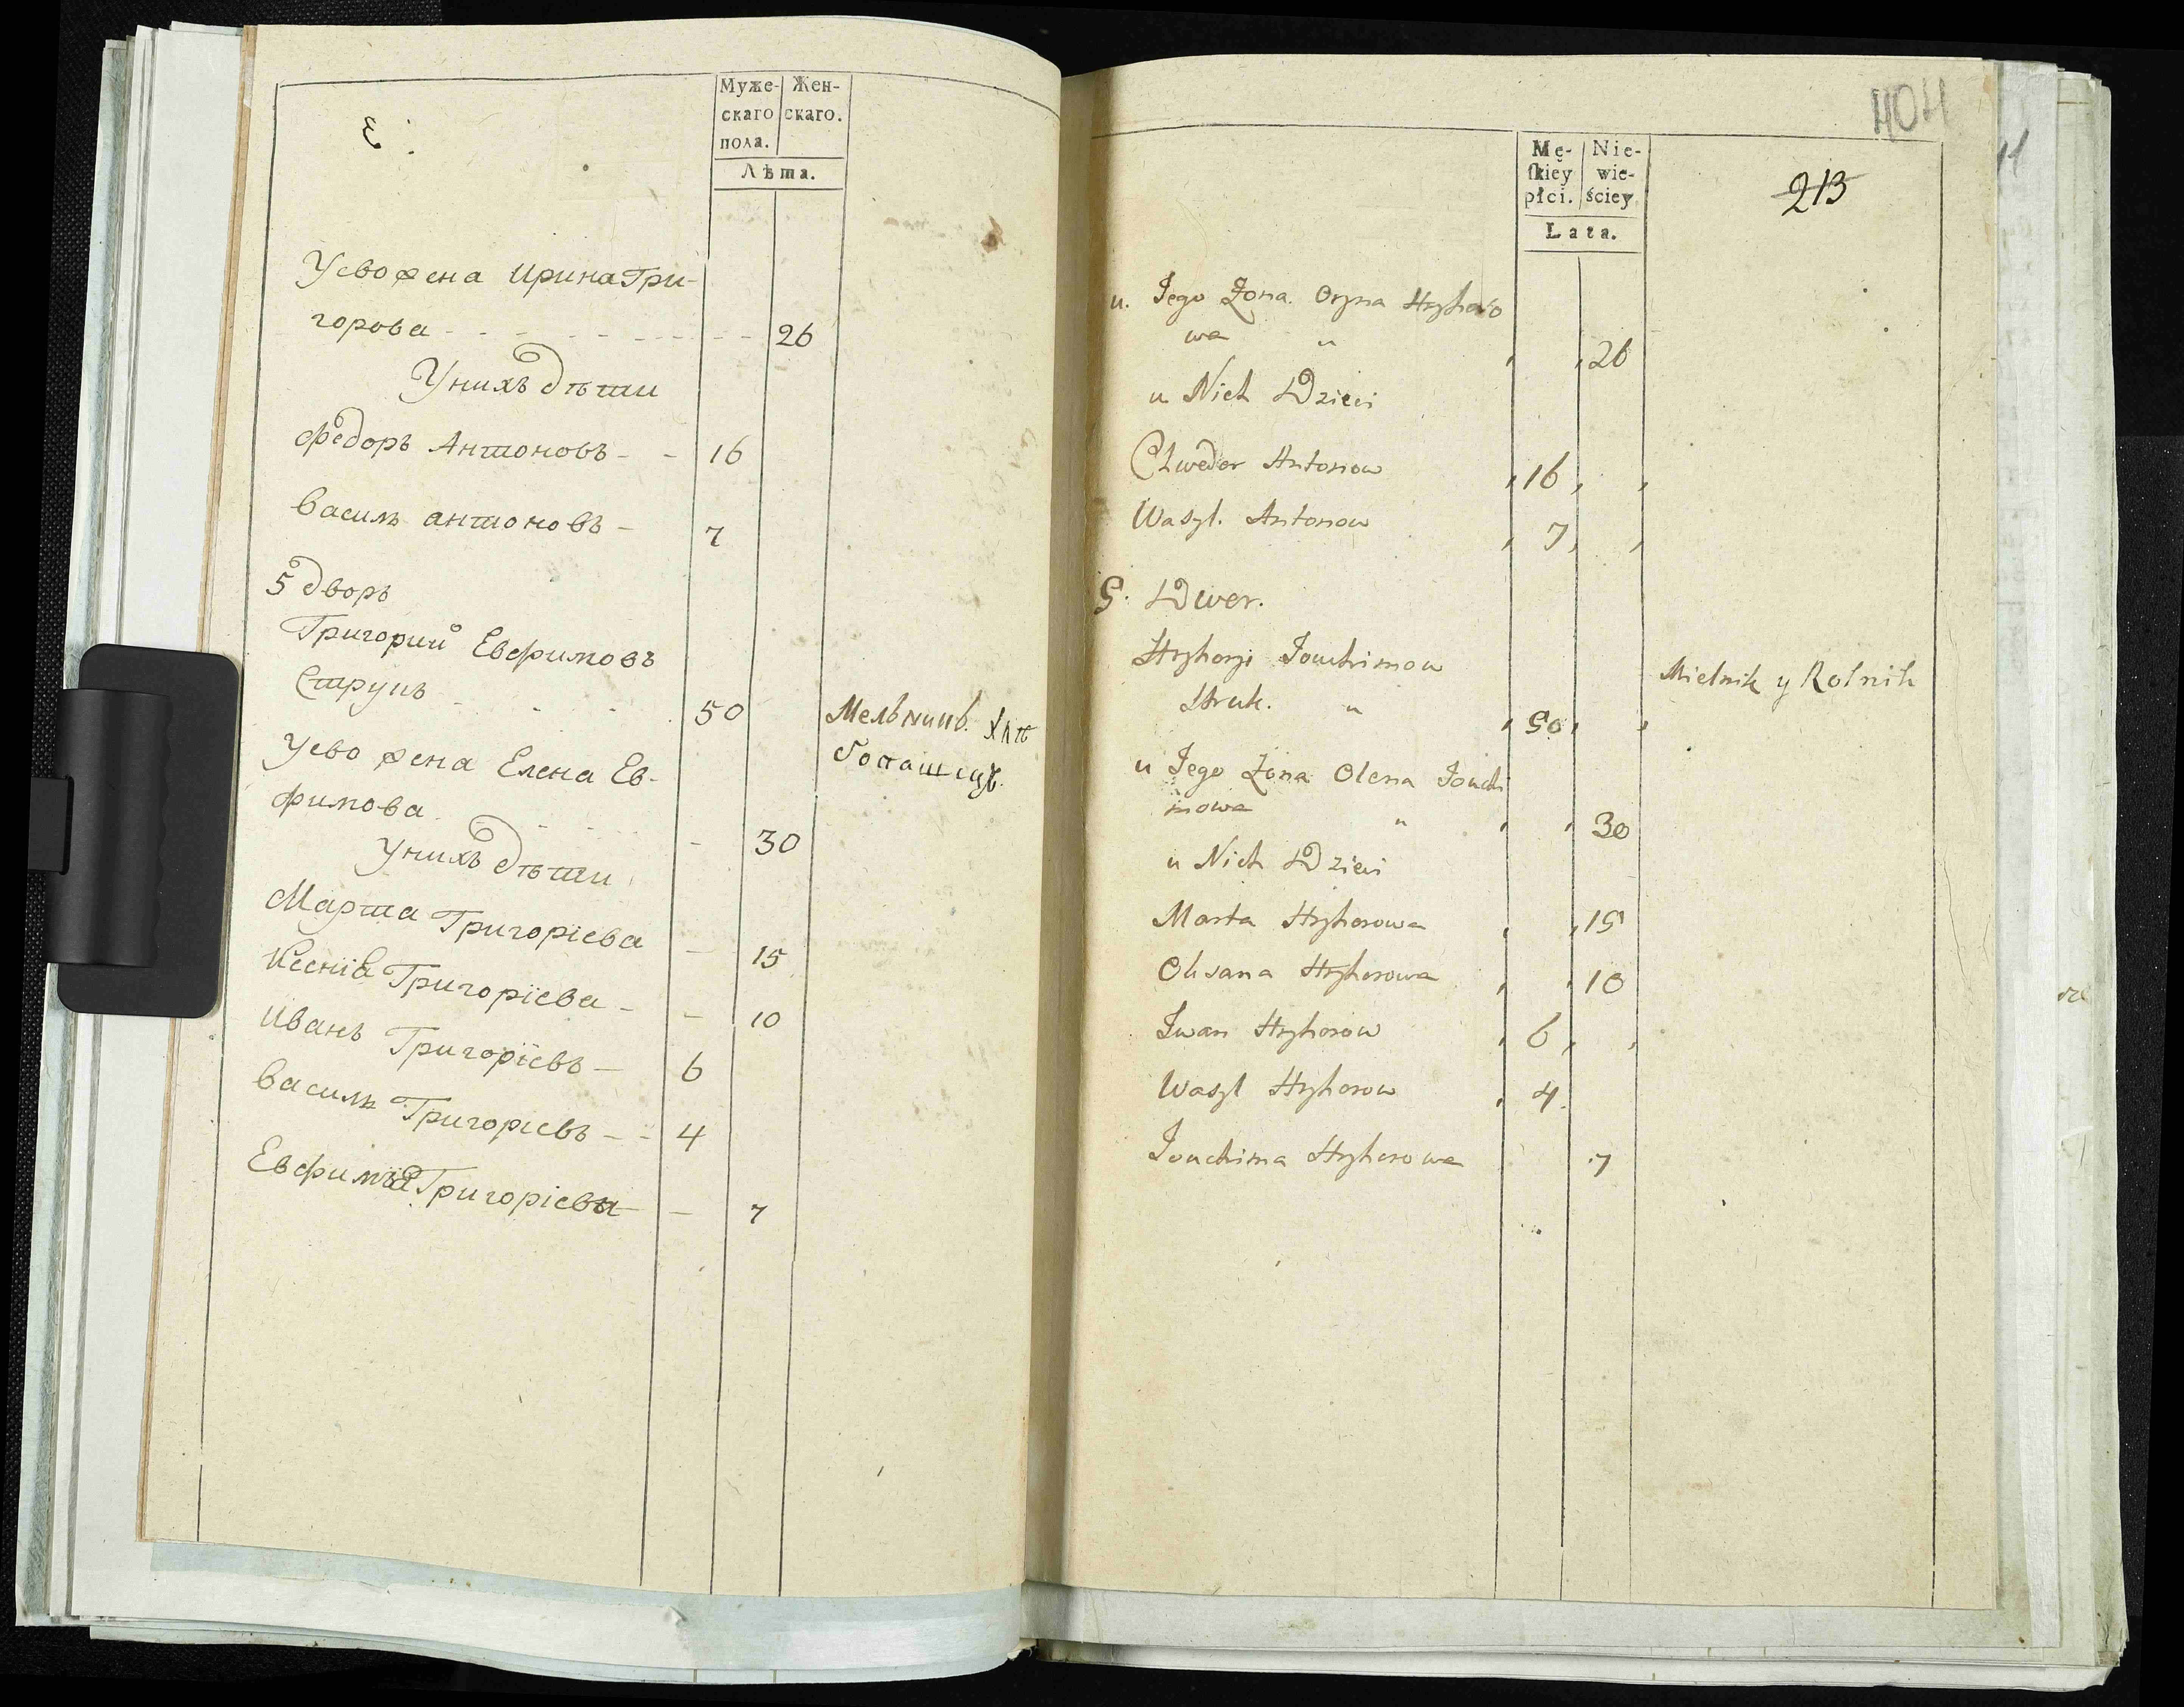 Е.
Муже- Жен-
скаго скаго.
пола.
Лѣта.
Уево жена Ирина Гри-
горова - - - 26
У нихъ дѣти
Федоръ Антоновъ - - 16
Василь антоновъ - 7
5 дворъ
Григорий Евфимовъ
Струкъ 50 Мельникъ. Хлѣ
бопашецъ.
Уево жена Елена Ев-
фимова - 30
У нихъ дѣти
Марта Григоріева - 15
Ксенія Григоріева - - 10
Иванъ Григоріевъ - 6
Василь Григоріевъ - - 4
Евфимія Григоріева - - 7
404
213
Mę- Nie-
ſkiey wie-
płci. ściey
Lata.
u. Jego Żona. Oryna Hryhoro
wa " 26
u Nich Dzieci
Chwedor Antonow 16
Wasyl. Antonow 7
5. Dwor.
Hryhoryi Jouchimow
Struk. " 50 Mielnik y Rolnik
u Jego Żona Olena Jouchi
mowa " 30
u Nich Dzieci
Marta Hryhorowa 15
Oksana Hryhorowa 10
Iwan Hryhorow 6
Wasyl Hryhorow 4.
Jouchima Hryhorowa 7